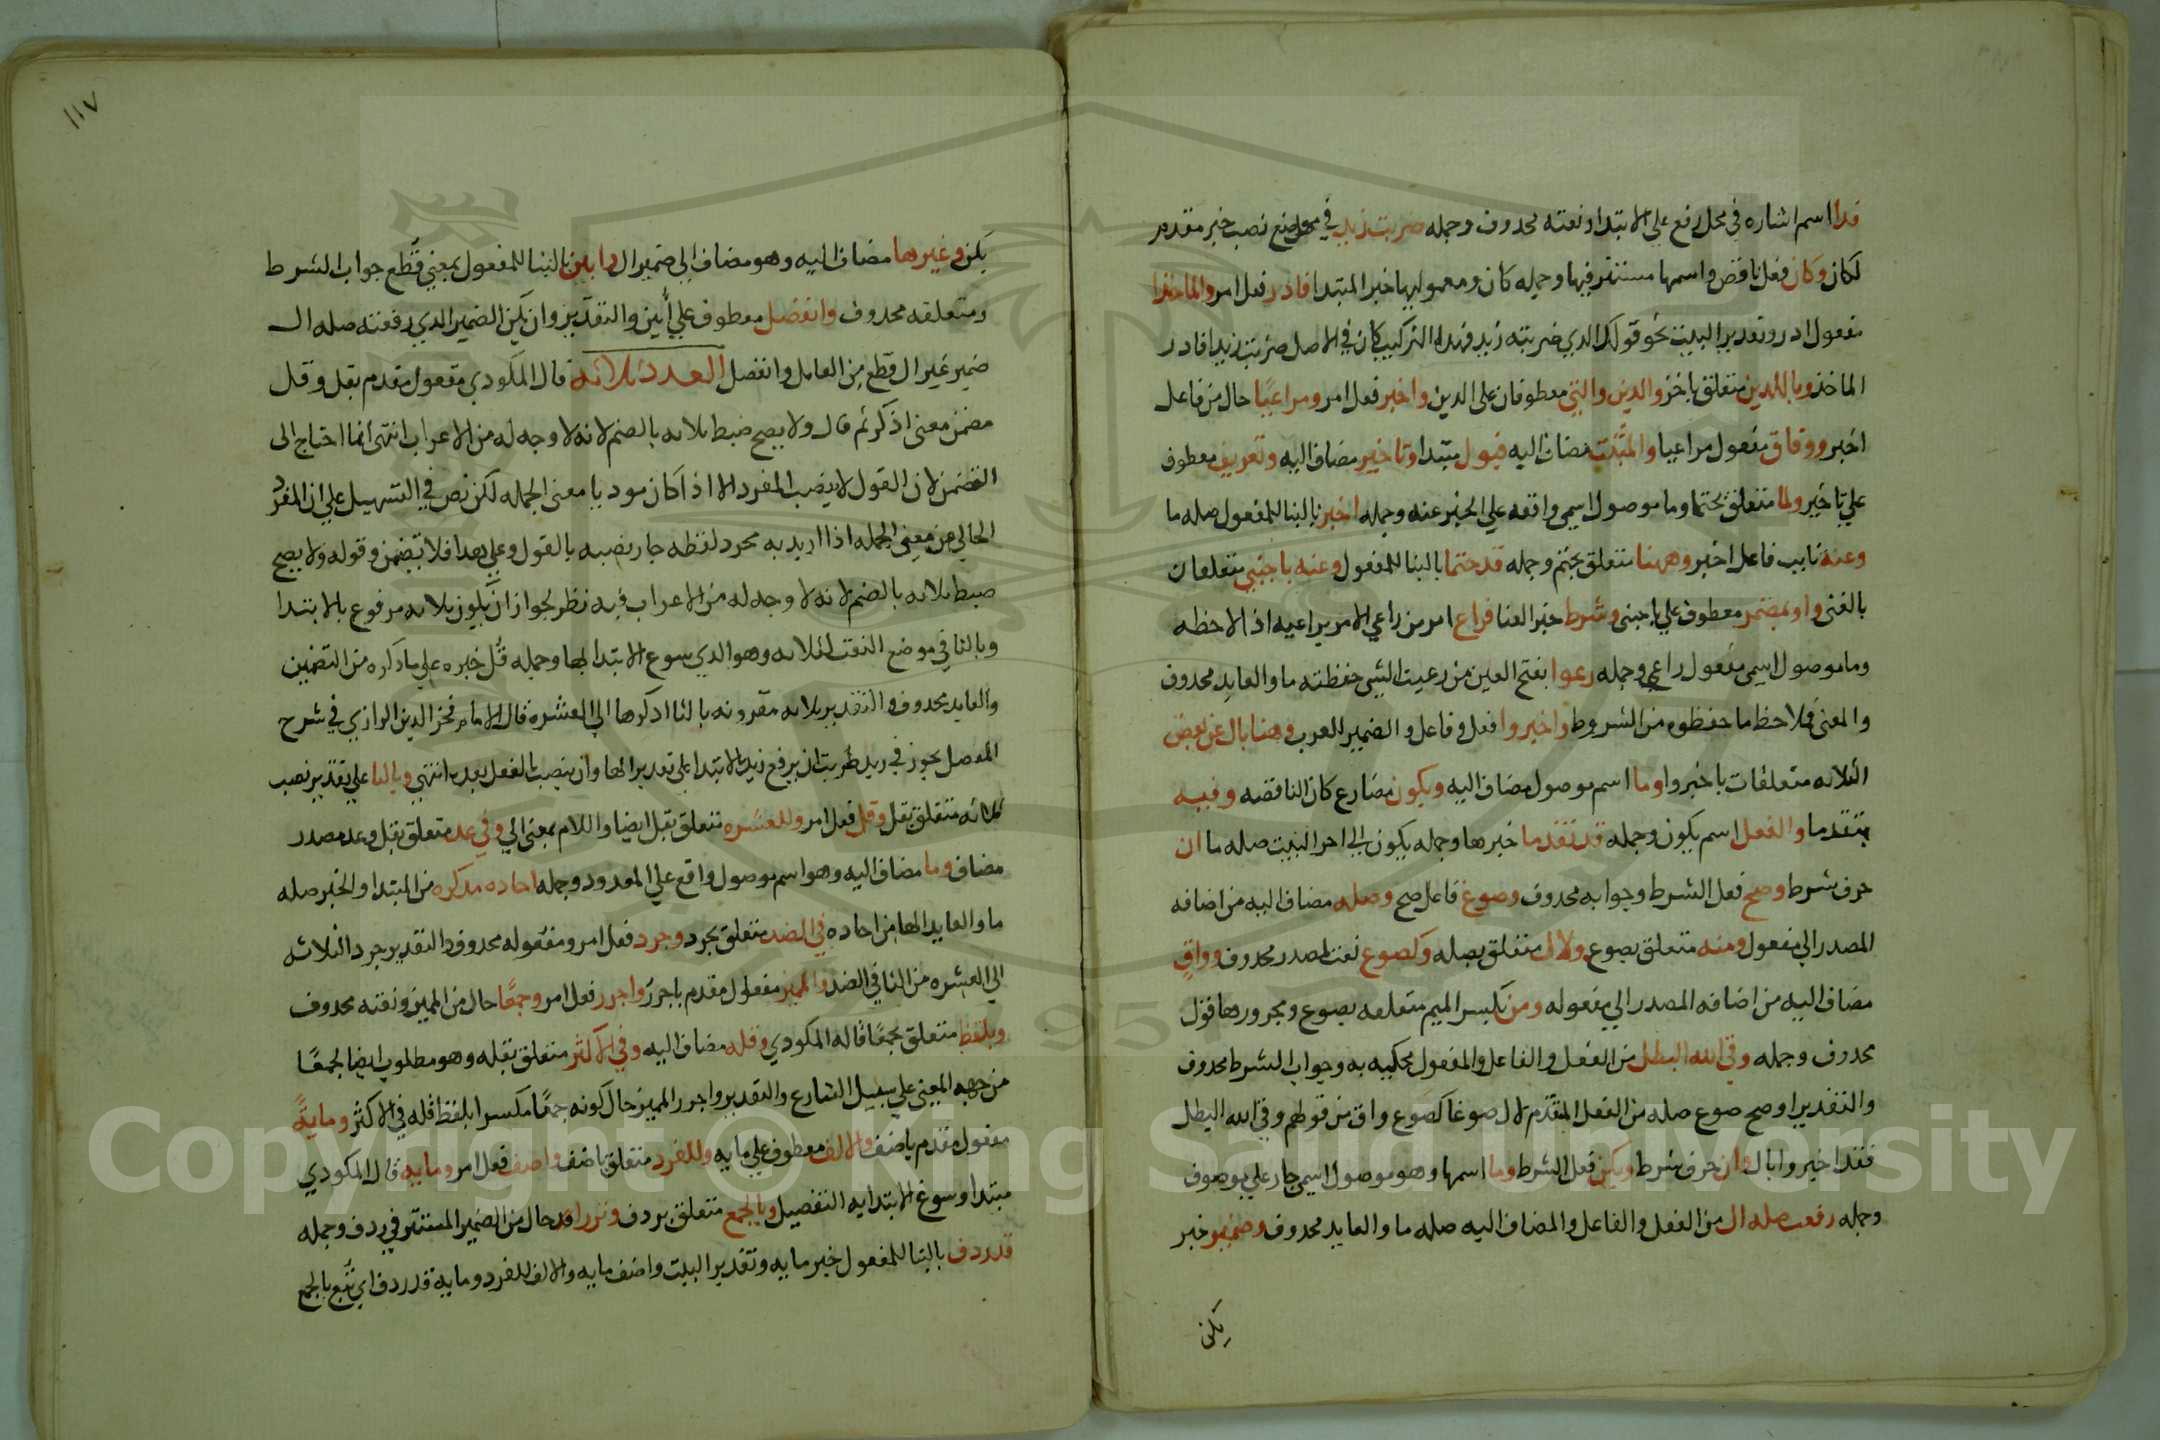 فذا اسم اشاره في محل رفع علي الابتدا ونعته محدوف وجمله ضربت زيدا في موضع نصب خبر مقدم
لكان وكان فعل ناقص واسمها مستتر فيها وجمله كان ومعموليها خبر المبتدا فادر فعل امر والماخذا
مفعول ادر وتقدير البيت نحو قولك الذي ضربته زيد فهذا التركيب كان في الاصل ضربت زيدا فادر
الماخذ وباللذين متعلق باخبر والذين والتي معطوفان علي الذين واخبر فعل امر ومراعيًا حال من فاعل
اخبر ووفاق مفعول مراعيا والمثبت مضاف اليه قبول مبتدا وتاخير مضاف اليه وتعريف معطوف
علي تاخير ولما متعلق بحتما وما موصول اسمي واقعه علي المخبر عنه وجمله اخبر بالبنا للمفعول صله ما
وعنه نايب فاعل اخبر وههنا متعلق بحتم وجمله قد حتما بالبنا للمفعول وعنه باجنبي متعلقان
بالغني واو بمضمر معطوف علي باجنبي وشرط خبر الغنا فراع امر من راعي الامر يراعيه اذا لاحظه
وما موصول اسمي مفعول راعي وجمله رعوا بفتح العين من رعيت الشي حفظته ما والعايد محدوف
والمعني فلاحظ ما حفظوه من الشروط واخبروا فعل وفاعل والضمير للعرب وهنا بال عن بعض
الثلاثه متعلقات باخبروا وما اسم موصول مضاف اليه ويكون مضارع كان الناقصه وفيه
يتقدما والفعل اسم يكون وجمله قد تقدما خبرها وجمله يكون الي اخر البيت صله ما ان
حرف شرط وصح فعل الشرط وجوابه محدوف وصوغ فاعل صح وصله مضاف اليه من اضافه
المصدر الي مفعول ومنه متعلق بصوغ ولال متعلق بصله وكصوغ نعت لمصدر محدوف وواقٍ
مضاف اليه من اضافه المصدر الي مفعوله ومن بكسر الميم متعلقه بصوغ ومجرورها قول
محدوف وجمله وقي الله البطل من الفعل والفاعل والمفعول محكيه به وجواب الشرط محدوف
والتقدير اوصح صوغ صله من الفعل المقدم لال صوغا كصوغ واق من قولهم وقي الله البطل
فقد اخبروا بال وان حرف شرط ويكن فعل الشرط وما اسمها وهو موصول اسمي جار علي موصوف
وجمله رفعت صله ال من الفعل والفاعل والمضاف اليه صله ما والعايد محدوف وضمير خبر
يكن
١١٧
يكن وغيرها مضاف اليه وهو مضاف الي ضمير ال وابين بالبنا للمفعول بمعني قُطع جواب الشرط
ومتعلقه محدوف وانفصل معطوف علي أُبين والتقدير وان يكن الضمير الذي رفعته صله ال
ضمير غير ال قطع من العامل وانفصل العدد ثلاثه قال المكودي مفعول مقدم بقل وقل
مضمن معني اذكر ثم قال ولا يصح ضبط ثلاثه بالضم لانه لا وجه له من الاعراب انتهي انما احتاج الي
التضمن لان القول لا ينصب المفرد الا اذا كان موديا معني الجمله لكن نص في التسهيل علي ان المفرد
الخالي من معني الجمله اذا اريد به مجرد لفظه جاز نصبه بالقول وعلي هدا فلا تضمن وقوله ولا يصح
ضبط ثلاثه بالضم لانه لا وجه له من الاعراب فيه نظر لجواز ان يكون ثلاثه مرفوع بالابتدا
وبالتا في موضع النعت لثلاثه وهو الذي سوغ الابتدا بها وجمله قل خبره علي ما ذكره من التضمين
والعايد محدوف والتقدير ثلاثه مقرونه بالتا اذكرها الي العشره قال الامام فخر الدين الرازي في شرح
المفصل يجوز في زيد ضربت ان يرفع زيد بالابتدا علي تقدير الها وان ينصب بالفعل بعده انتهي وبالتا علي تقدير نصب
ثلاثه متعلق بقل وقل فعل امر وللعشره متعلق بقل ايضا واللام بمعني الي وفي عد متعلق بقل وعد مصدر
مضاف وما مضاف اليه وهو اسم موصول واقع علي المعدود وجمله احاده مذكره من المبتدا والخبر صله
ما والعايد الها من احاده في الضد متعلق بجرد وجرد فعل امر ومفعوله محدوف والتقدير جرد الثلاثه
الي العشره من التا في الضد والمميز مفعول مقدم باجرر واجرر فعل امر وجمعًا حال من المميز ونعته محدوف
وبلفظ متعلق بجمعًا قاله المكودي وقله مضاف اليه وفي الاكثر متعلق بقله وهو مطلوب ايضا لجمعًا
من جهه المعني علي سبيل التنازع والتقدير واجرر المميز حال كونه جمعًا مكسرا بلفظ قله في الاكثر ومايةً
مفعول مقدم باضف والالف معطوف علي مايه وللفرد متعلق باضف واضف فعل امر ومايه قال المكودي
مبتدا وسوغ الابتدا به التفصيل وبالجمع متعلق بردف ونزرا قد حال من الضمير المستتر في ردف وجمله
قد ردف بالبنا للمفعول خبر مايه وتقدير البيت واضف مايه والالف للفرد ومايه قد ردف اي تُبع بالجمع
Copyright © King Saud University
1957